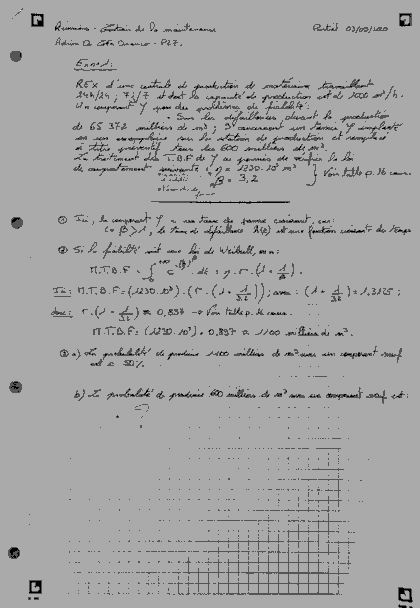 Révisions - Gestion de la maintenance Partiel 03/09/2020
P27.
Exo n°1:
REX d'une centrale de production de matériaux travaillant
24h/24 ; 7j/7 et dont la capacité de production est de 1000 m³/h.
Un composant Y pose des problèmes de fiabilité:
. Sur les défaillances durant la production
de 65 372 milliers de m³ ; 9 concernent un Y implanté
en un exemplaire sur la de production et remplacé
à titre préventif tous les 600 milliers de m³.
Le traitement des T.B.F de Y a permis de vérifier la loi
de comportement suivante : η = 1230.10³ m³
β = 3,2 } Voir table p.16 cours.
① Ici, le composant Y a un taux de panne croissant, car:
β > 1, le taux de défaillance λ(t) est une fonction croissante du temps
② Si la fiabilité suit une loi de Weibull, on a:
M.T.B.F = ∫ dt = η . Γ(1 + 1/β).
Ici: M.T.B.F = (1230.10³) . (Γ . (1 + 1/3,2)) ; avec : (1 + 1/3,2) = 1,3125 ;
donc: Γ . (1 + 1/3,2) ≈ 0,897 → Voir table p.16 cours.
M.T.B.F = (1230.10³) . 0,897 ≈ 1100 milliers de m³.
③ a) La probabilité de produire 1100 milliers de m³ avec un composant neuf
est 50%.
b) La probabilité de produire 600 milliers de m³ avec un composant neuf est: